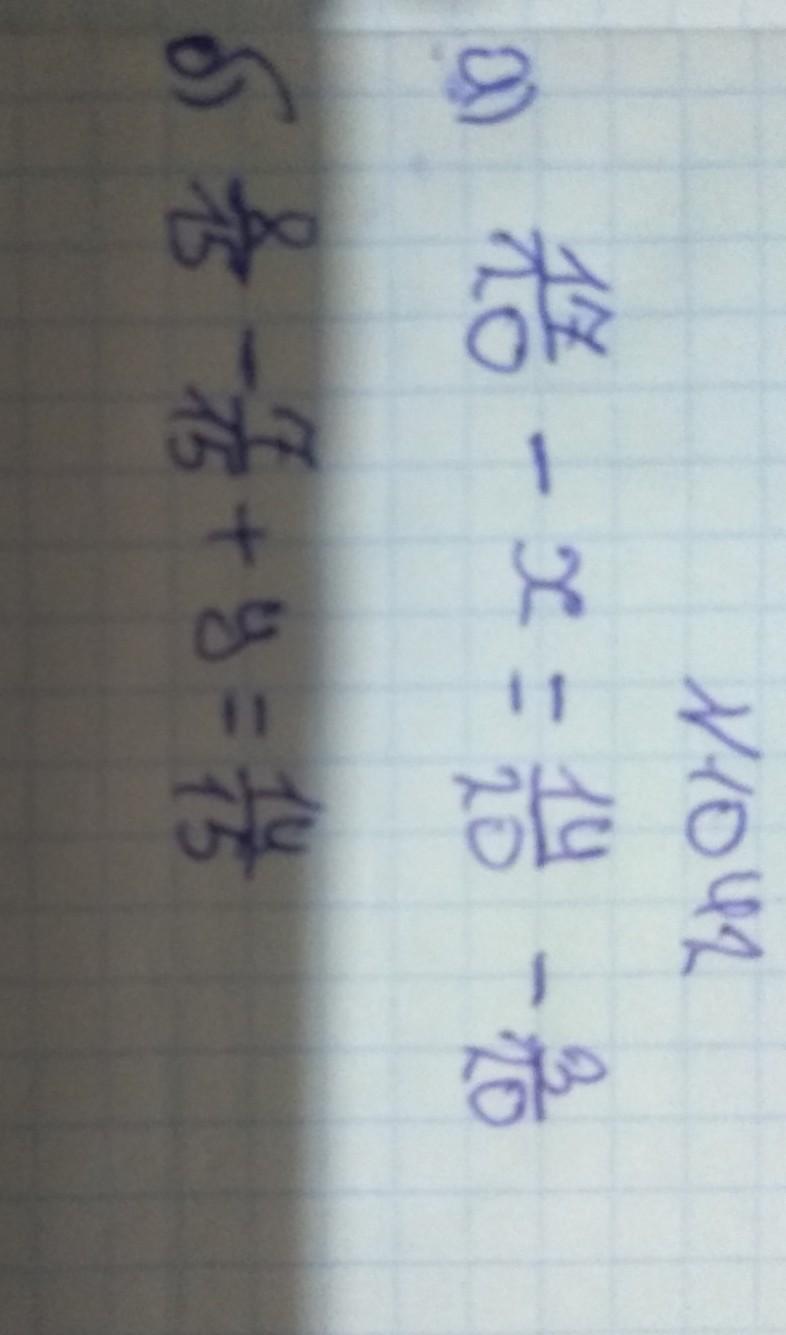 N1042
а) 17/20 - x = 14/20 - 3/20
б) 8/15 - 7/15 + y = 14/15